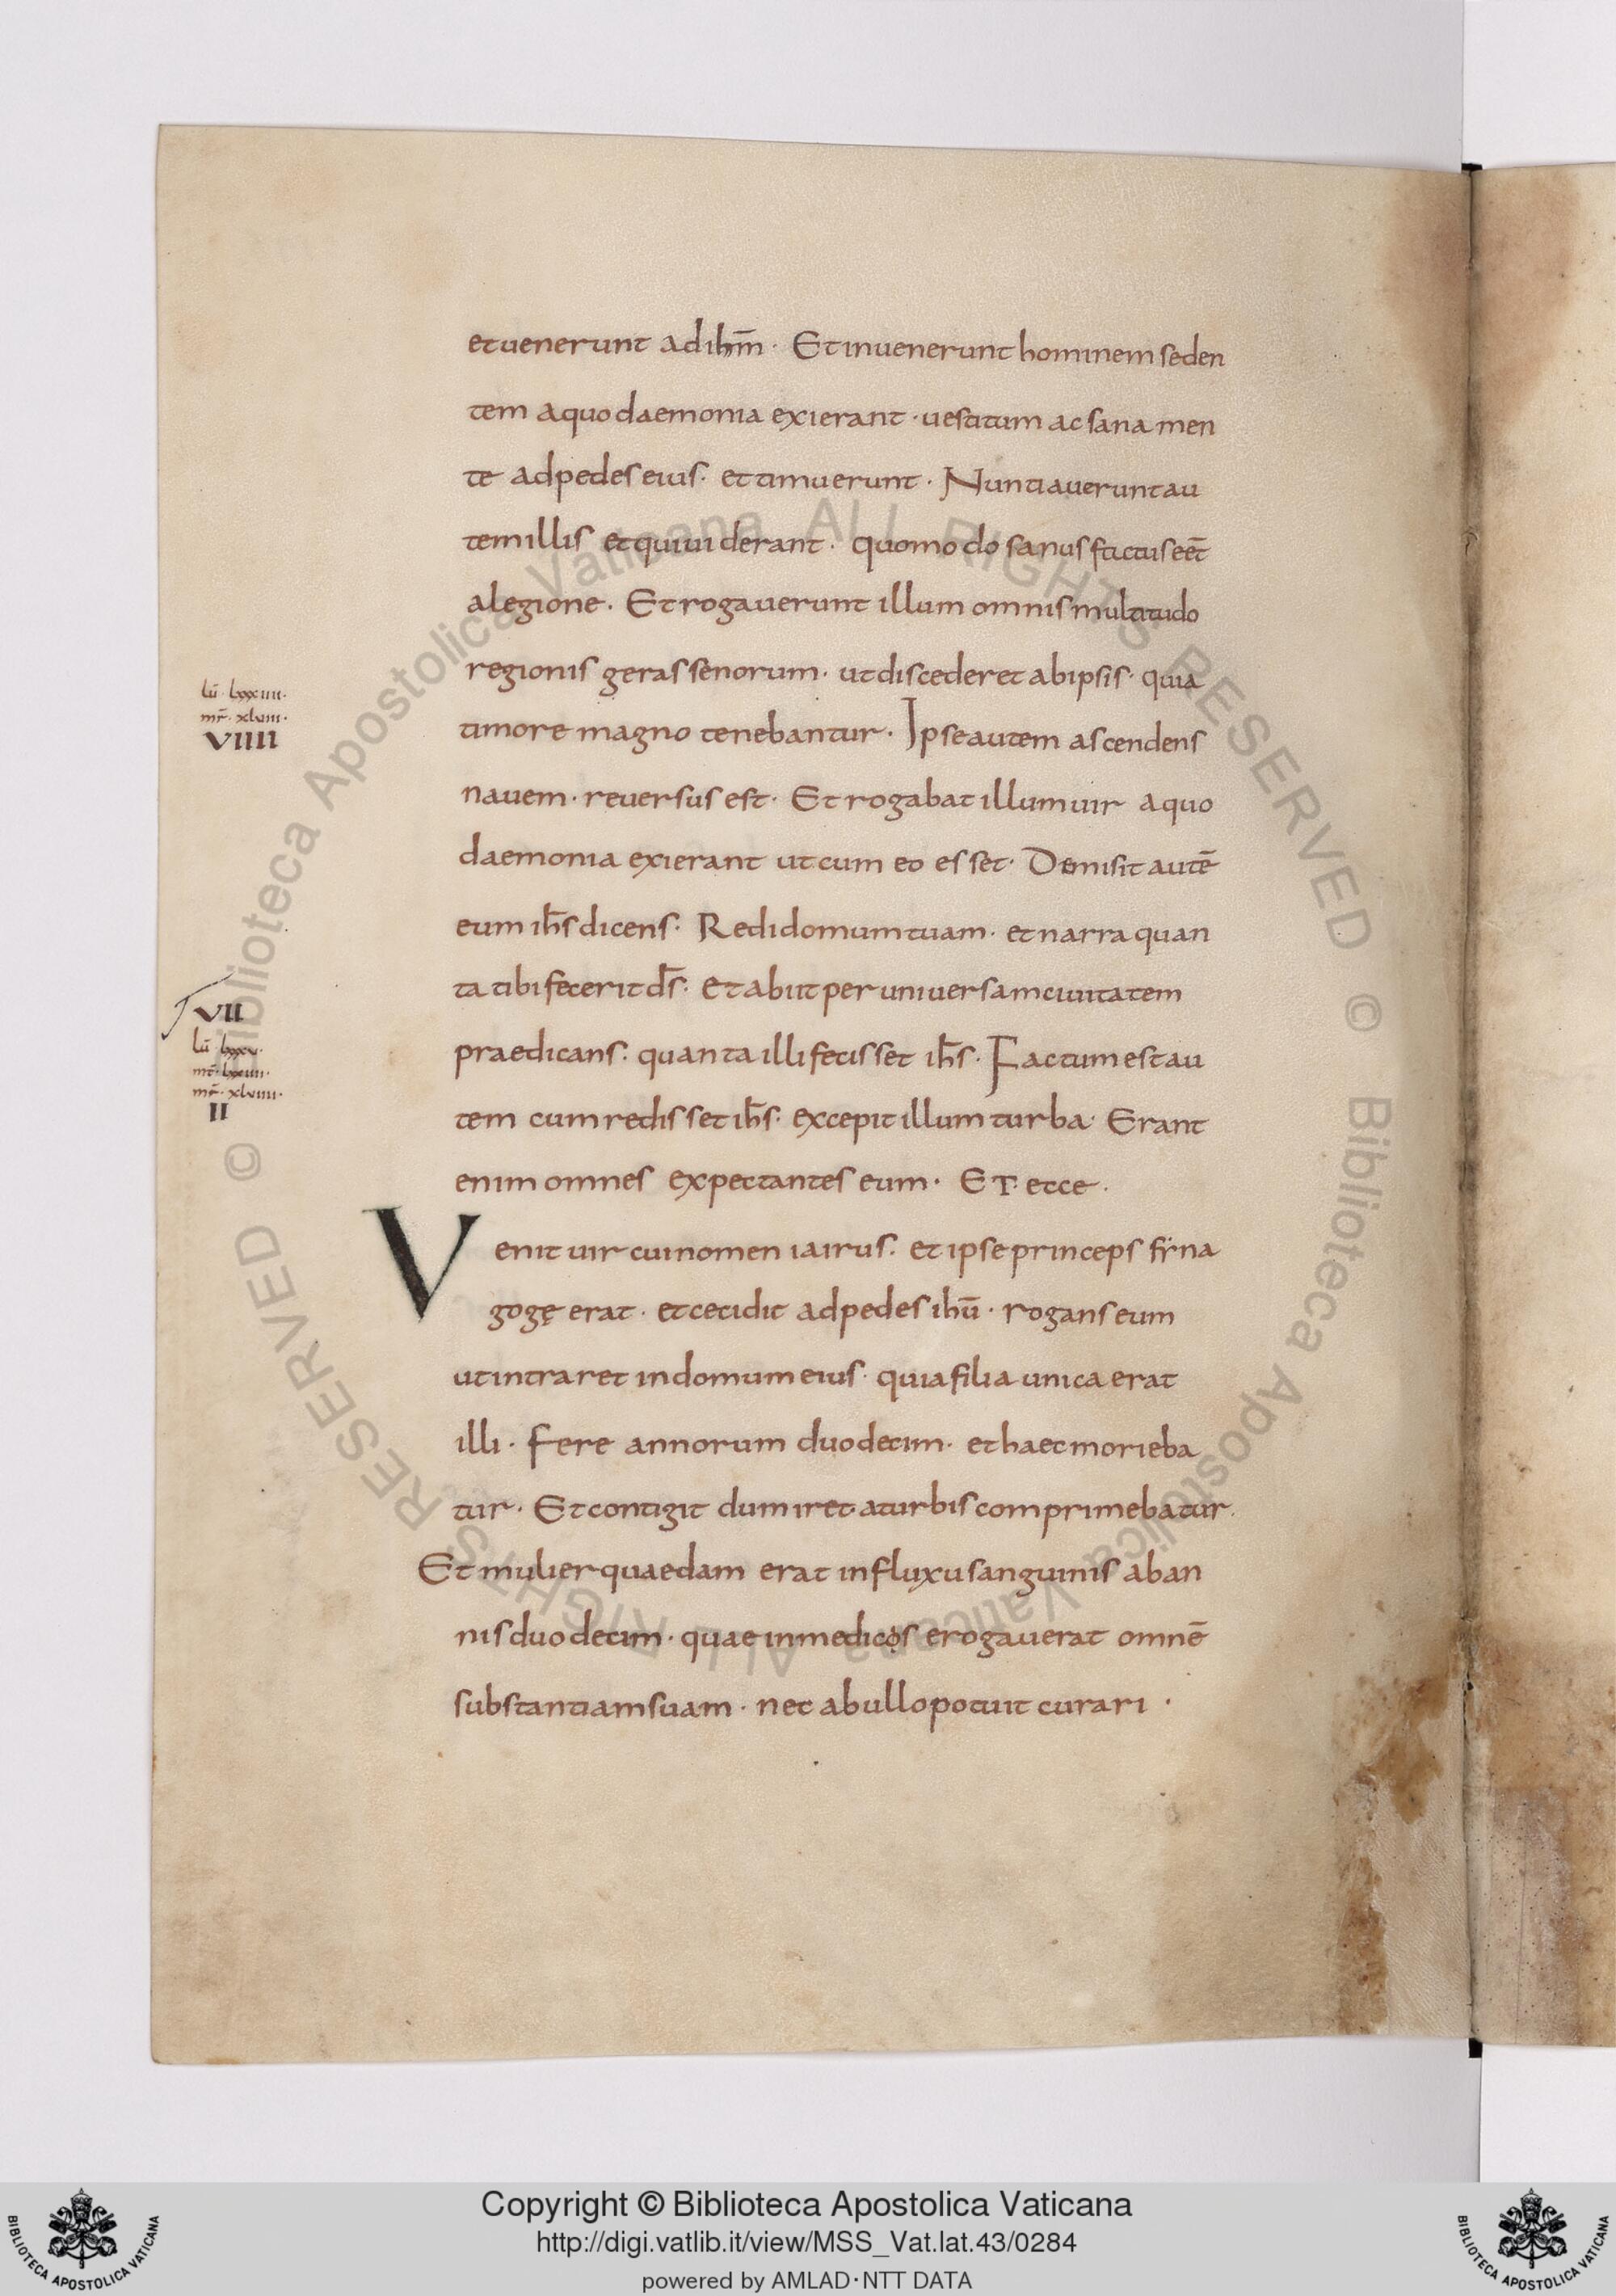 et uenerunt ad ihm̄ · Et inuenerunt hominem seden
tem a quo daemonia exierant · uestitum ac sana men
te ad pedes eius · et timuerunt · Nuntiauerunt au
tem illis et qui uiderant · quomodo sanus factus eēt
a legione · Et rogauerunt illum omnis multitudo
regionis gerassenorum · ut discederet ab ipsis · quia
lū · lxxxiiii ·
mr̄ · xlviii ·
VIIII
timore magno tenebantur · Ipse autem ascendens
nauem · reuersus est · Et rogabat illum uir a quo
daemonia exierant ut cum eo esset · Demisit autē
eum ih̄s dicens · Redi domum tuam · et narra quan
ta tibi fecerit d̄s · et abiit per uniuersam ciuitatem
VII
lū · lxxxv ·
mt̄ · lxxiiii ·
mr̄ · xlviiii ·
II
praedicans · quanta illi fecisset ih̄s · Factum est au
tem cum redisset ih̄s · excepit illum turba · Erant
enim omnes expectantes eum · ET ecce ·
Venit uir cui nomen iairus · et ipse princeps sẏna
gogę erat · et cecidit ad pedes ihū · rogans eum
ut intraret in domum eius · quia filia unica erat
illi · fere annorum duodecim · et haec morieba
tur · Et contigit dum iret · a turbis comprimebatur ·
Et mulier quaedam erat in fluxu sanguinis ab an
nis duodecim · quae in medicos erogauerat omnē
substantiam suam · nec ab ullo potuit curari ·
Copyright © Biblioteca Apostolica Vaticana
http://digi.vatlib.it/view/MSS_Vat.lat.43/0284
powered by AMLAD · NTT DATA
BIBLIOTECA APOSTOLICA VATICANA
BIBLIOTECA APOSTOLICA VATICANA
© Biblioteca Apostolica Vaticana ALL RIGHTS RESERVED © Biblioteca Apostolica Vaticana ALL RIGHTS RESERVED